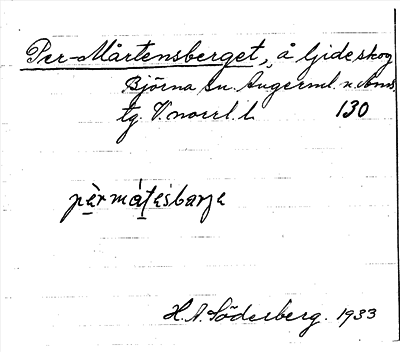 Per-Mårtensberget, å Gideskog
Björna sn. Ångerml. n. Ams.
tg. V.norrl. l. 130
pèrmátesbarje
H.A. Söderberg. 1933